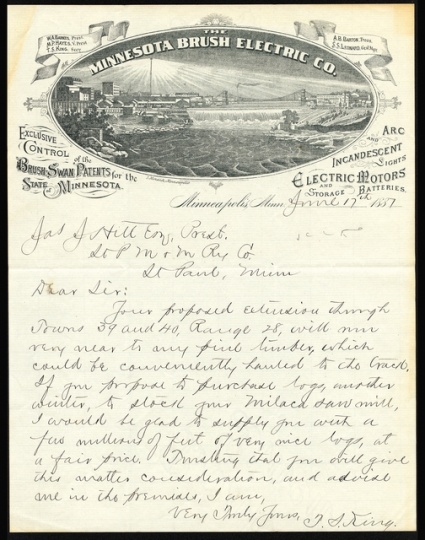 THE
MINNESOTA BRUSH ELECTRIC CO.
T.S. KING,
EXCLUSIVE
CONTROL
of the
BRUSH-SWAN PATENTS for the
STATE of MINNESOTA.
ARC
AND
INCANDESCENT
LIGHTS
ELECTRIC MOTORS
AND
STORAGE BATTERIES.
Minneapolis, Minn. June 17th 1887
Jas J Hill Esq, Prest.
St P M & M Ry Co.
St Paul, Minn
Dear Sir:
Your proposed extension through
Towns 39 and 40, Range 28, will run
very near to my pine timber, which
could be conveniently hauled to the track.
If you propose to purchase logs, another
winter, to stock your Milaca saw mill,
I would be glad to supply you with a
few millions of feet of very nice logs, at
a fair price. Trusting that you will give
this matter consideration, and advise
me in the premises, I am,
Very Truly Yours, T. S. King.